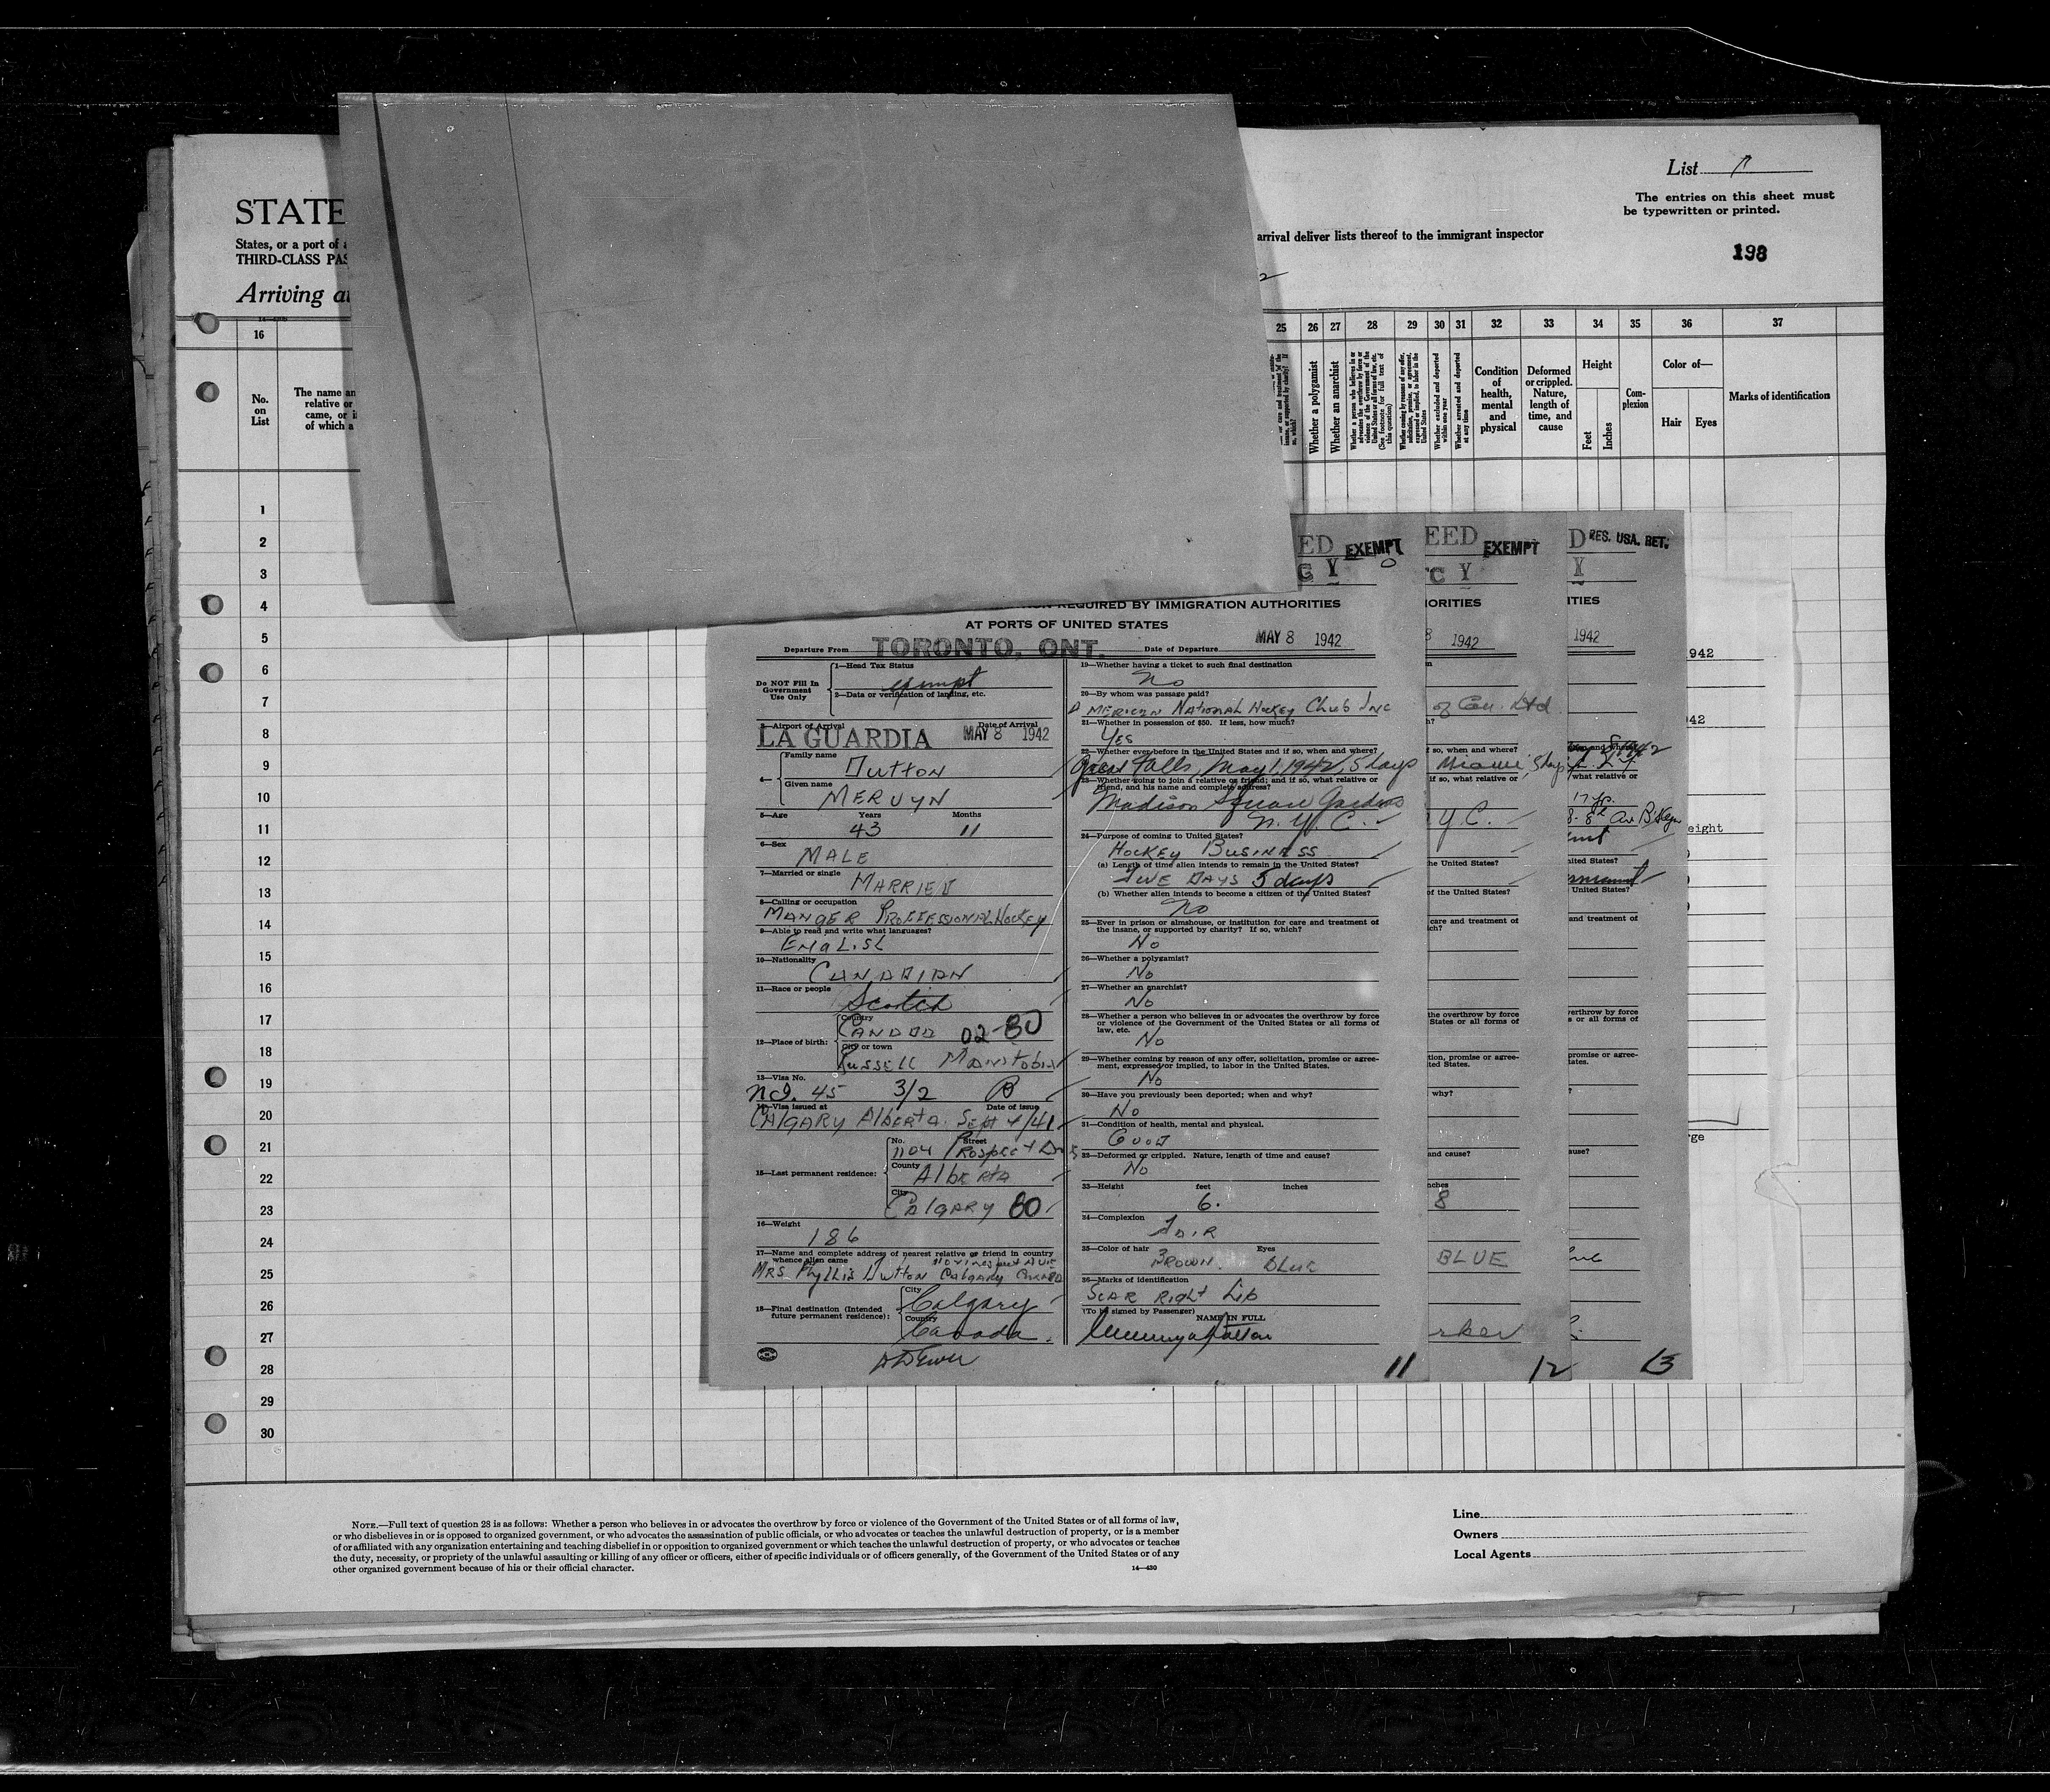 STATE
States, or a port of
THIRD-CLASS PAS
Arriving at
List
The entries on this sheet must
be typewritten or printed.
arrival deliver lists thereof to the immigrant inspector
198
2
16
No.
on
List
The name an
relative or
came, or i
of which a
25
26
27
28
29
30
31
32
33
34
35
36
37
Whether a polygamist
Whether an anarchist
Whether a person who believes in or
advocates the overthrow by force or
violence of the Government of the
United States or all forms of law, etc.
(See footnote for full text of
this question)
Whether coming by reason of any offer,
solicitation, promise, or agreement,
expressed or implied, to labor in the
United States
Whether excluded and deported
within one year
Whether arrested and deported
at any time
Condition
of
health,
mental
and
physical
Deformed
or crippled.
Nature,
length of
time, and
cause
Height
Feet
Inches
Com-
plexion
Color of—
Hair
Eyes
Marks of identification
1
2
3
4
5
6
7
8
9
10
11
12
13
14
15
16
17
18
19
20
21
22
23
24
25
26
27
28
29
30
ED EXEMPT
C Y
REQUIRED BY IMMIGRATION AUTHORITIES
AT PORTS OF UNITED STATES
Departure From TORONTO, ONT. Date of Departure MAY 8 1942
Do NOT Fill In
Government
Use Only
1—Head Tax Status
exempt
2—Data or verification of landing, etc.
3—Airport of Arrival Date of Arrival
LA GUARDIA MAY 8 1942
4— Family name
Dutton
Given name
MERVYN
5—Age Years Months
43 11
6—Sex
MALE
7—Married or single
MARRIED
8—Calling or occupation
MANGER PROFESSIONAL HOCKEY
9—Able to read and write what languages?
ENGLISH
10—Nationality
CANADIAN
11—Race or people
Scotch
12—Place of birth: Country
CANADA 02-80
City or town
RUSSELL MANITOBA
13—Visa No.
NCI. 45 3/2
14—Visa issued at Date of issue
CALGARY ALBERTA. SEPT 4/41
15—Last permanent residence: No. Street
1104 PROSPECT
County
ALBERTA
City
CALGARY 80
16—Weight
186
17—Name and complete address of nearest relative or friend in country
whence alien came
MRS. Phyllis Dutton Calgary Canada
18—Final destination (Intended
future permanent residence): City
Calgary
Country
Canada.
19—Whether having a ticket to such final destination
No
20—By whom was passage paid?
AMERICAN NATIONAL HOCKEY Club INC
21—Whether in possession of $50. If less, how much?
Yes
22—Whether ever before in the United States and if so, when and where?
Great Falls, May 1 1942, 5 days
23—Whether going to join a relative or friend; and if so, what relative or
friend, and his name and complete address?
Madison Square Gardens
N. Y. C.
24—Purpose of coming to United States?
HOCKEY BUSINESS
(a) Length of time alien intends to remain in the United States?
FIVE DAYS 5 days
(b) Whether alien intends to become a citizen of the United States?
No
25—Ever in prison or almshouse, or institution for care and treatment of
the insane, or supported by charity? If so, which?
No
26—Whether a polygamist?
No
27—Whether an anarchist?
No
28—Whether a person who believes in or advocates the overthrow by force
or violence of the Government of the United States or all forms of
law, etc.
No
29—Whether coming by reason of any offer, solicitation, promise or agree-
ment, expressed or implied, to labor in the United States.
No
30—Have you previously been deported; when and why?
No
31—Condition of health, mental and physical.
GOOD
32—Deformed or crippled. Nature, length of time and cause?
No
33—Height feet inches
6.
34—Complexion
FAIR
35—Color of hair Eyes
BROWN. BLUE
36—Marks of identification
SCAR Right Lip
(To be signed by Passenger) NAME IN FULL
Mervyn A Dutton
11
EED EXEMPT
C Y
ORITIES
8 1942
of Can. Ltd
h?
f so, when and where?
Miami, 5 days
if so, what relative or
Y.C.
he United States?
of the United States?
care and treatment of
ch?
the overthrow by force
States or all forms of
tion, promise or agree-
ted States.
why?
and cause?
nches
8
BLUE
rker
12
D RES. USA. RET.
Y
ITIES
1942
what relative or
17 yr.
8- 8th Av B'klyn
nited States?
United States?
and treatment of
verthrow by force
s or all forms of
promise or agree-
tates.
?
ause?
13
942
42
eight
rge
NOTE.—Full text of question 28 is as follows: Whether a person who believes in or advocates the overthrow by force or violence of the Government of the United States or of all forms of law,
or who disbelieves in or is opposed to organized government, or who advocates the assassination of public officials, or who advocates or teaches the unlawful destruction of property, or is a member
of or affiliated with any organization entertaining and teaching disbelief in or opposition to organized government or which teaches the unlawful destruction of property, or who advocates or teaches
the duty, necessity, or propriety of the unlawful assaulting or killing of any officer or officers, either of specific individuals or of officers generally, of the Government of the United States or of any
other organized government because of his or their official character.
14—430
Line
Owners
Local Agents